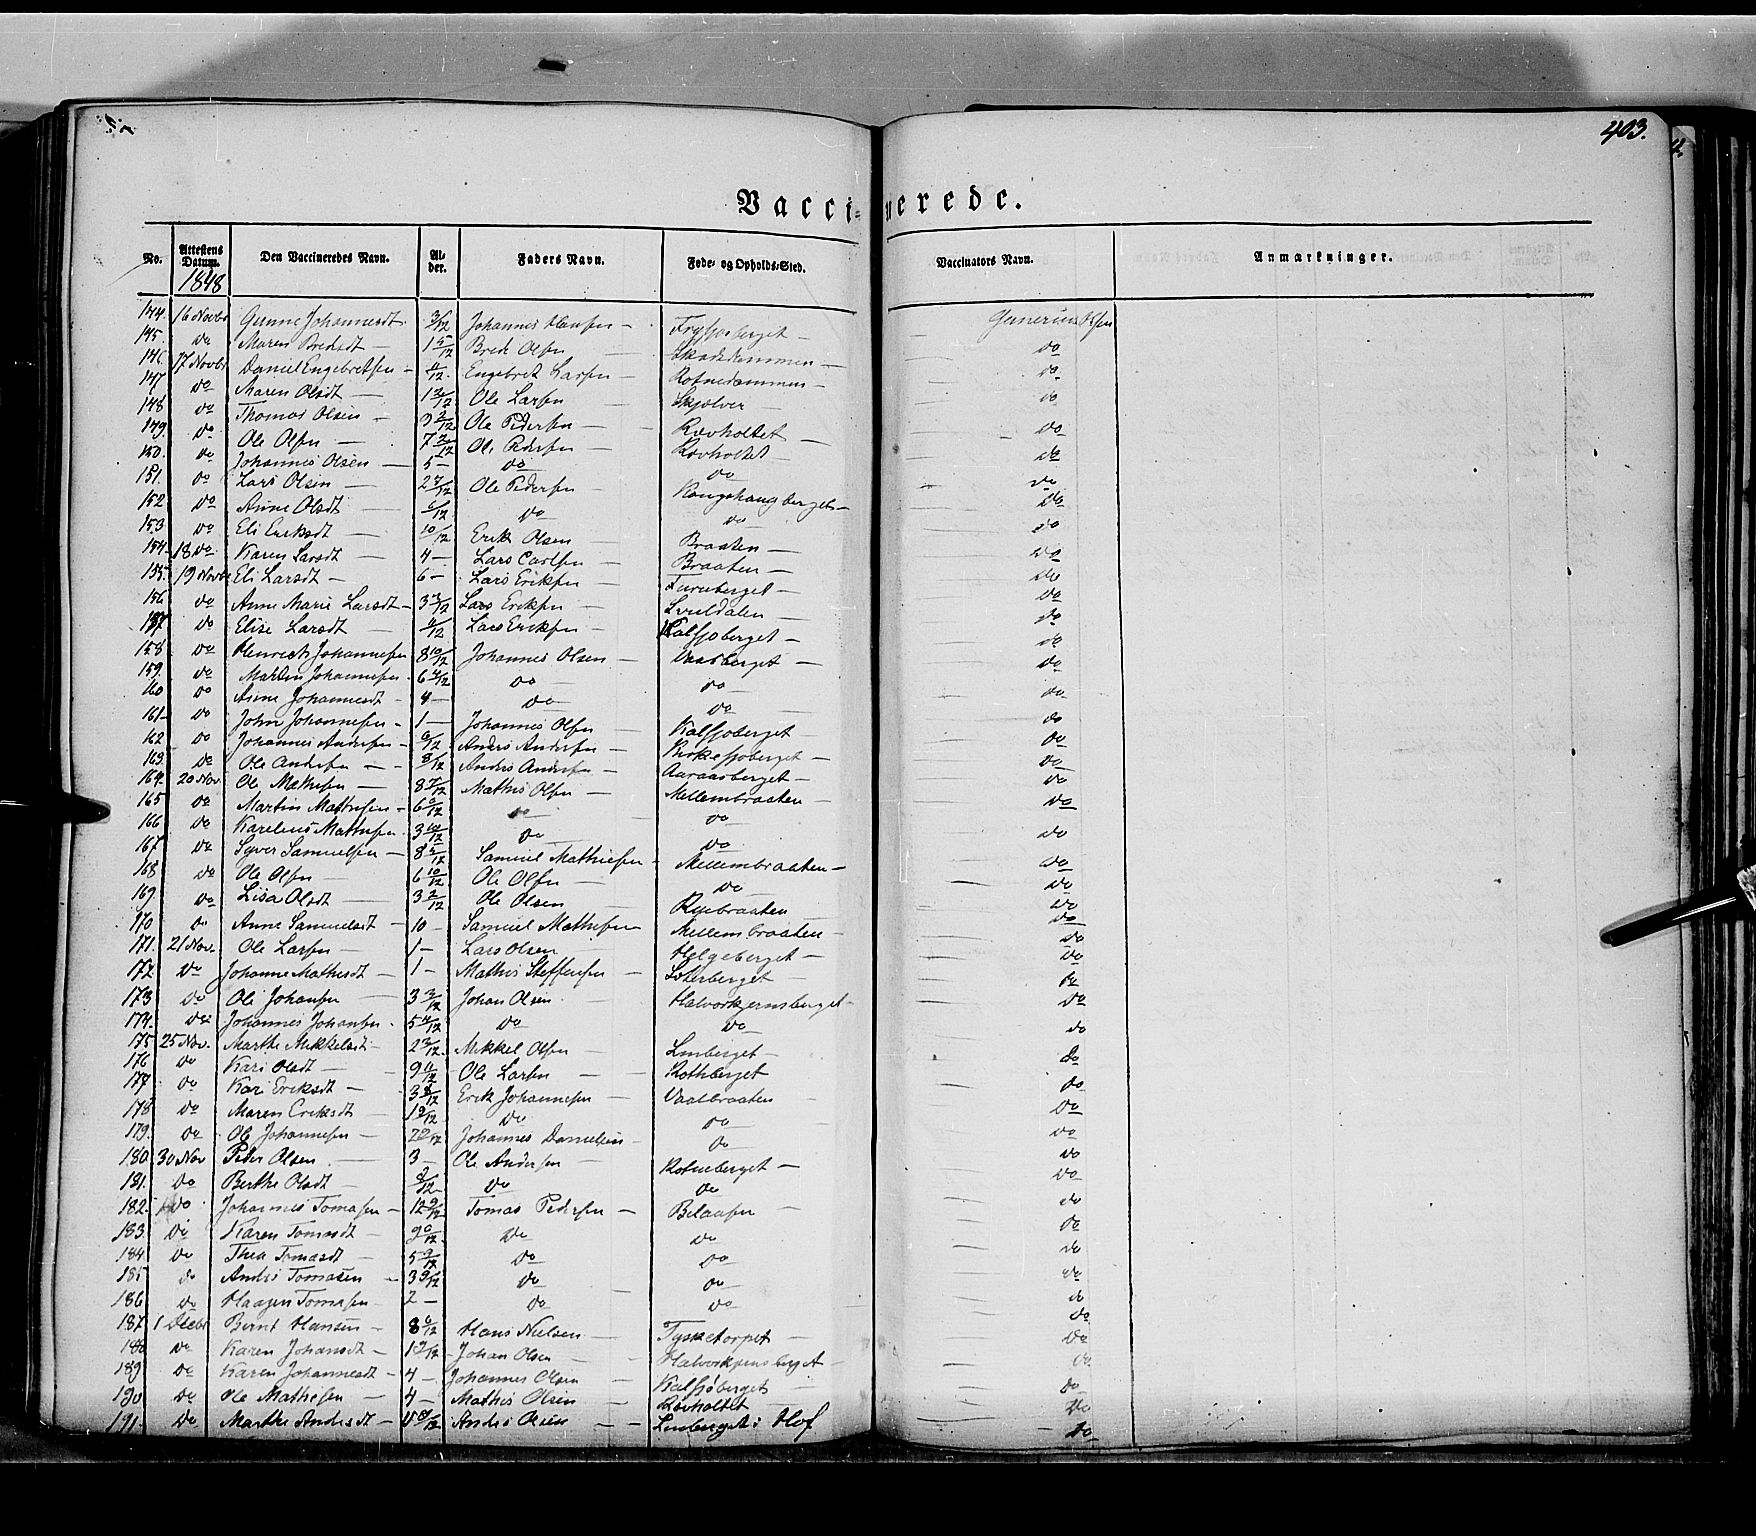 403.
Vaccinerede.
No. Attestens Datum. Den Vaccineredes Navn. Alder. Faders Navn. Føde- og Opholds-Sted. Vaccinators Navn. Anmærkninger.
1848
144. 16 Novbr Gunne Johannesdt 3/12 Johannes Hansen — Frysjøberget — Gunerius Olsen
145. do Maren Bredesdt — 1 5/12 Brede Olsen — do
146. 17 Novbr Daniel Engebretsen — /12 Engebret Larsen — Rotnedammen — do
147 do Maren Olsdt — 1 /12 Ole Larsen — Skjolver — do
148 do Thomas Olsen — 9 2/12 Ole Pedersen — Rovholtet — do
149. do Ole Olsen — 7 2/12 Ole Pedersen — Rovholtet — do
150. do Johannes Olsen — 5 — do do do
151. do Lars Olsen — 2 /12 Ole Pedersen — Kongshaugberget — do
152 do Anne Olsdt — /12 do do do
153 do Eli Eriksdt — 10/12 Erik Olsen — Braaten — do
154. 18 do Karen Larsdt — 4 — Lars Carlsen — Braaten — do
155. 19 Novbr Eli Larsdt — 6 — Lars Eriksen — Furuberget — do
156 do Anne Marie Larsdt — 3 /12 Lars Eriksen — do
157 do Elise Larsdt — /12 Lars Eriksen — Kalsjoberget — do
158 do Henrich Johannesen 8 10/12 Johannes Olsen — do
159. do Martin Johannesen 6 /12 do do do
160 do Anne Johannesdt — 4 — do do do
161 do John Johannesen — 1 — Johannes Olsen — Kalsjoberget — do
162 do Johannes Andersen — 6/12 Anders Andersen — Birkesjoberget — do
163. do Ole Andersen — 8/12 Anders Andersen — Aaraasberget — do
164. 20 Nov. Ole Mathesen — 8 /12 Mathis Olsen — Mellembraaten — do
165 do Martin Mathisen — 6 /12 do do do
166 do Karelius Mathisen 3 10/12 do do do
167 do Syver Samuelsen — 8 5/12 Samuel Mathiesen — Mellembraaten — do
168 do Ole Olsen — 6 10/12 Ole Olsen — do do
169. do Lisa Olsdt — 3 2/12 Ole Olsen — Ryebraaten do
170 do Anne Samuelsdt — 10 — Samuel Mathisen Mellembraaten — do
171. 21 Nov. Ole Larsen — 1 — Lars Olsen Helgeberget — do
172. do Johanne Mathisdt — 1 — Mathis Steffensen — do
173 do Ole Johansen — 3 3/12 Johan Olsen Halvorkjernsberget — do
174. do Johannes Johansen 5 /12 do do do
175 25 Nov. Marthe Mikkelsdt — 2 3/12 Mikkel Olsen — Linberget — do
176 do Kari Olsdt — 9 /12 Ole Larsen — Rotberget do
177 do Kari Eriksdt — 3 8/12 Erik Johannesen — Vaalbraaten — do
178 do Maren Eriksdt — 1 /12 do do do
179. do Ole Johannesen — 7 /12 Johannes Danielsen do do
180 30 Nov Peder Olsen — 3 — Ole Andersen — Rotneberget — do
181. do Berthe Olsdt — /12 do do do
182. do Johannes Tomasen — 12 9/12 Tomas Pedersen — Belaasen — do
183. do Karen Tomasdt — 9 /12 do do do
184 do Thea Tomasdt — 5 9/12 do do do
185 do Andrs Tomasen — 3 9/12 do do do
186 do Haagen Tomasen — 2 — do do do
187 1 Decbr Bernt Hansen — 8 6/12 Hans Nielsen — Tysketorpet — do
188 do Karen Johansdt — 1 9/12 Johan Olsen — Halvorkjernsberget — do
189 do Karen Johannesdt — 4 — Johannes Olsen — Kalsjøberget do
190 do Ole Mathesen — 4 — Mathis Olsen — Rovholtet do
191. do Marthe Andersdt — /12 Andrs Olsen — Linberget i Hof do